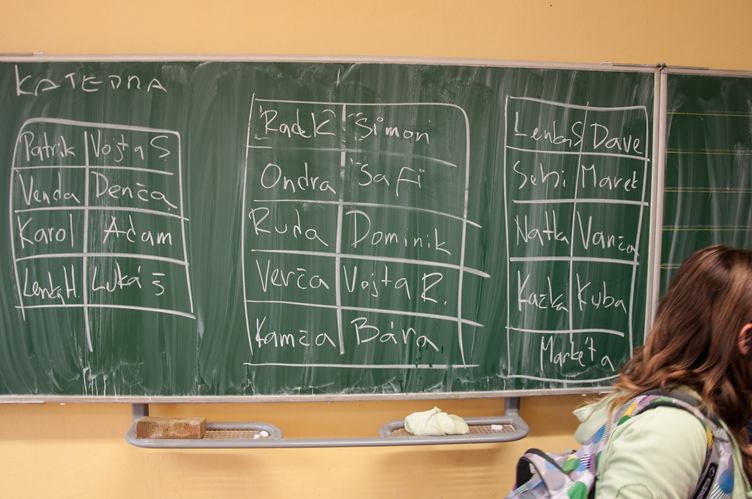 KATEDRA
Patrik Vojta S
Venda Denča
Karol Adam
Lenka H. Lukáš
Radek Šimon
Ondra Safi
Ruda Dominik
Verča Vojta R.
Kamča Bára
Lenka S Dave
Sebi Marek
Natka Vanča
Kačka Kuba
Markéta